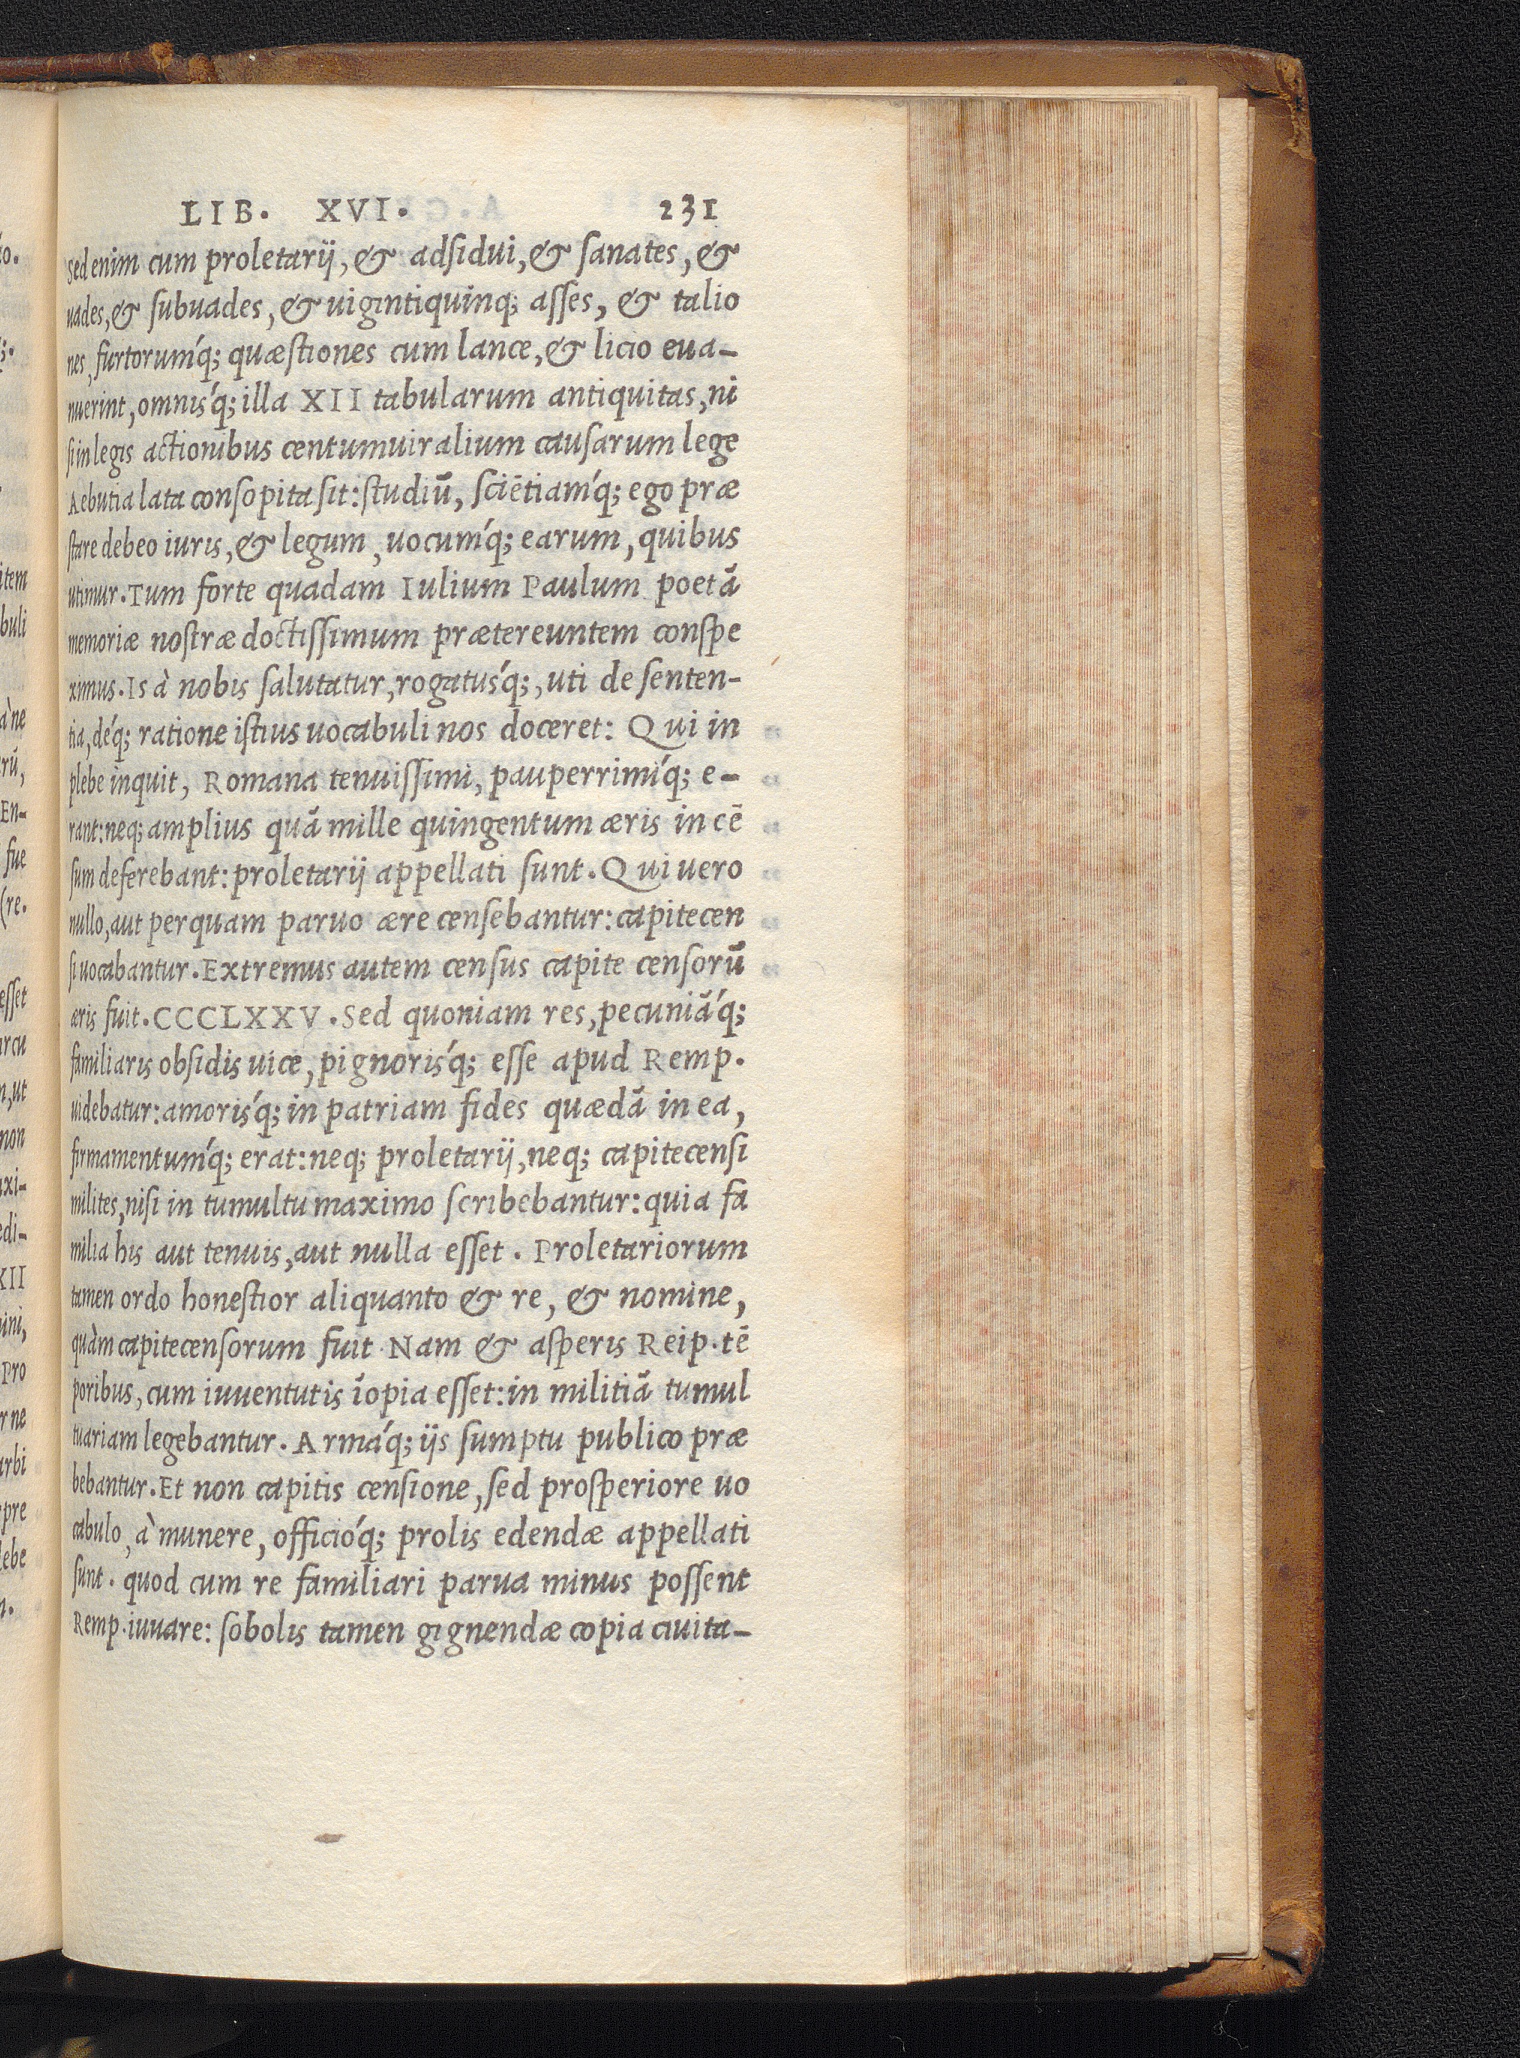 LIB. XVI. 231
sed enim cum proletarij, & adsidui, & sanates, &
uades, & subuades, & uigintiquinq; asses, & talio
nes, furtorumq́; quæstiones cum lance, & licio eua-
nuerint, omnisq́; illa XII tabularum antiquitas, ni
si in legis actionibus centumuiralium causarum lege
Aebutia lata consopita sit: studiū, sciētiamq́; ego præ
stare debeo iuris, & legum, uocumq́; earum, quibus
utimur. Tum forte quadam Iulium Paulum poetā
memoriæ nostræ doctissimum prætereuntem conspe
ximus. Is à nobis salutatur, rogatusq́;, uti de senten-
tia, déq; ratione istius uocabuli nos doceret: Qui in
plebe inquit, Romana tenuissimi, pauperrimiq́; e-
rant: neq; amplius quā mille quingentum æris in cē
sum deferebant: proletarij appellati sunt. Qui uero
nullo, aut perquam paruo ære censebantur: capitecen
si uocabantur. Extremus autem census capite censorū
æris fuit. CCCLXXV. Sed quoniam res, pecuniāq́;
familiaris obsidis uice, pignorisq́; esse apud Remp.
uidebatur: amorisq́; in patriam fides quædā in ea,
firmamentumq́; erat: neq; proletarij, neq; capitecensi
milites, nisi in tumultu maximo scribebantur: quia fa
milia his aut tenuis, aut nulla esset. Proletariorum
tamen ordo honestior aliquanto & re, & nomine,
quàm capitecensorum fuit. Nam & asperis Reip. tē
poribus, cum iuuentutis īopia esset: in militiā tumul
tuariam legebantur. Armaq́; ijs sumptu publico præ
bebantur. Et non capitis censione, sed prosperiore uo
cabulo, à munere, officioq́; prolis edendæ appellati
sunt. quod cum re familiari parua minus possent
Remp. iuuare: sobolis tamen gignendæ copia ciuita-